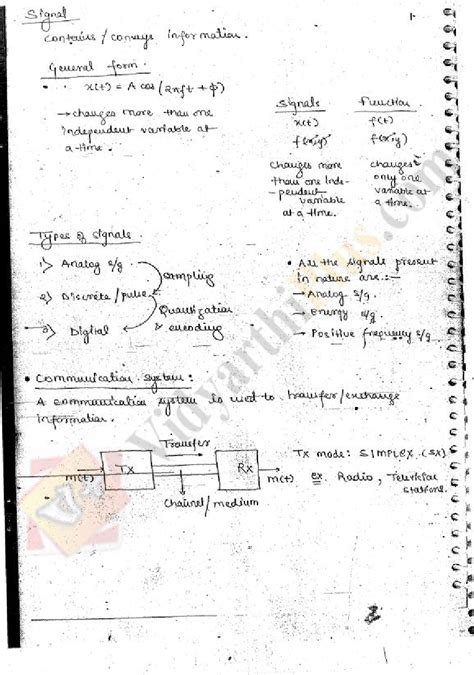 Signal
1.
contains / conveys information.
General form.
x(t) = A cos (2πft + φ)
→ changes more than one
independent variable at
a time.
Signals Function
x(t) f(t)
f(x,y) f(x,y)
changes more
than one inde-
pendent
variable
at a time.
changes
only one
variable at
a time.
Types of signals
1) Analog s/g.
sampling
2) Discrete / pulse
Quantization
& encoding
3) Digital
• All the signals present
in nature are:-
→ Analog s/g.
→ Energy s/g.
→ Positive frequency s/g.
• Communication system:
A communication system is used to transfer/exchange
information.
Transfer
m(t) Tx Rx m(t)
Channel/medium
Tx mode: SIMPLEX. (SX).
ex. Radio, Television
stations.
2
Vidyarthiplus.com
V+